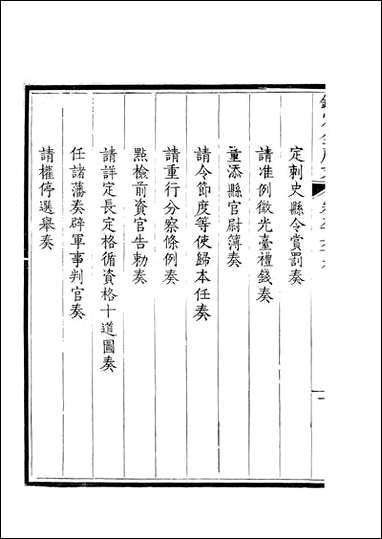 定刺史縣令賞罰奏
請准例徵光臺禮錢奏
量添縣官尉簿奏
請令節度等使歸本任奏
請重行分察條例奏
點檢前資官告勅奏
請詳定長定格循資格十道圖奏
任諸藩奏辟軍事判官奏
請權停選舉奏